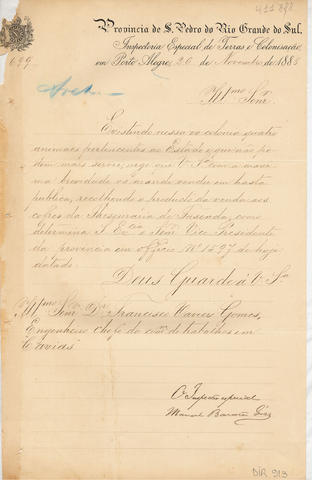 411 878
Provincia de S. Pedro do Rio Grande do Sul.
Inspectoria Especial de Terras e Colonisação
em Porto Alegre, 20 de Novembro de 1885
699
Illmo Snr.
Existindo nessa ex colonia quatro
animaes pertencentes ao Estado e que não po
dem mais servir, rogo que V. Sa com a maxi
ma brevidade os mande vender em hasta
publica, recolhendo o producto da venda aos
cofres da Thesouraria de Fasenda, como
determina S. Excia o Senr Vice Presidente
da provincia em officio No 1527 de hoje
datado.
Deus Guarde á V. Sa
Illmo Senr Dr Francisco Xavier Gomes,
Engenheiro chefe da com de trabalhos em
Caxias
O Inspector especial
Manoel Barata Góis
DIR 913